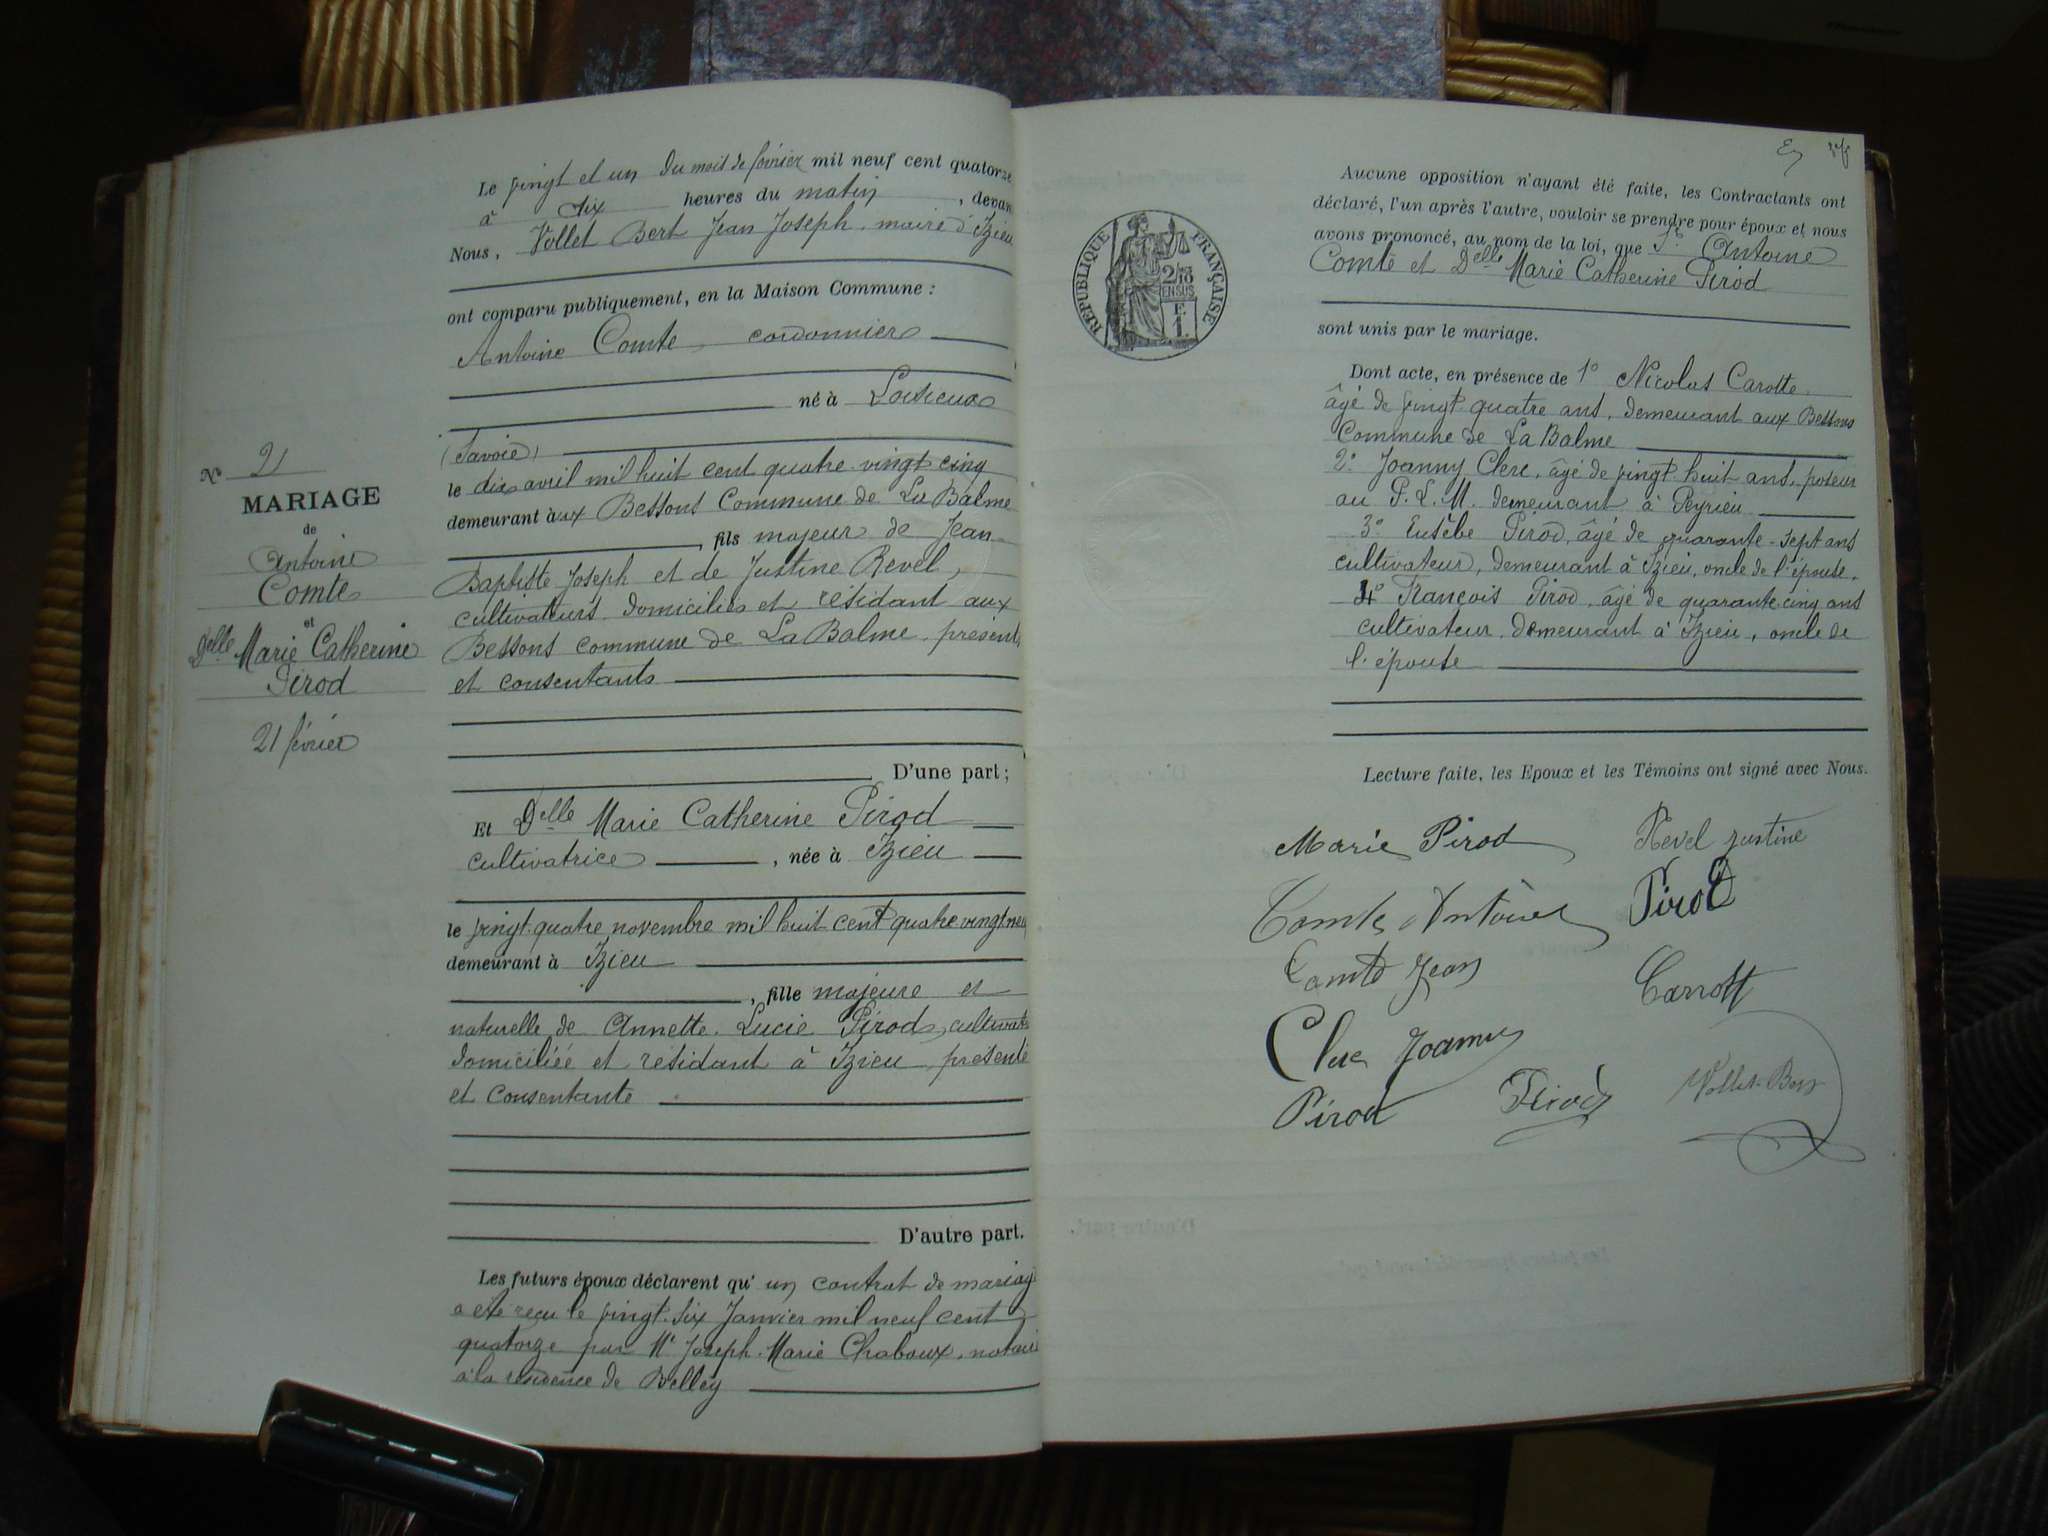 Nº 21
MARIAGE
de
Antoine
Comte
et
Delle Marie Catherine
Pirod
21 février
Le vingt et un du mois de février mil neuf cent quatorze
à dix heures du matin, devan
Nous, Vollet Bert Jean Joseph, maire d'Izieu
ont comparu publiquement, en la Maison Commune :
Antoine Comte, cordonnier
né à Loisieux
(Savoie)
le dix avril mil huit cent quatre-vingt cinq
demeurant aux Bessons Commune de La Balme
, fils majeur de Jean-
Baptiste Joseph et de Justine Revel,
cultivateurs domiciliés et résidant aux
Bessons commune de La Balme, présents
et consentants
D'une part ;
Et Delle Marie Catherine Pirod
cultivatrice, née à Izieu
le vingt quatre novembre mil huit cent quatre vingt neu
demeurant à Izieu
, fille majeure et
naturelle de Annette Lucie Pirod,
domiciliée et résidant à Izieu, présente
et consentante
D'autre part.
Les futurs époux déclarent qu'un contrat de mariag
a été reçu le vingt-six Janvier mil neuf cent
quatorze par Me Joseph-Marie Chaboux, notaire
à la résidence de Belley
RÉPUBLIQUE FRANÇAISE
2/10
EN SUS
F.
1.
Aucune opposition n'ayant été faite, les Contractants ont
déclaré, l'un après l'autre, vouloir se prendre pour époux et nous
avons prononcé, au nom de la loi, que Sr Antoine
Comte et Delle Marie Catherine Pirod
sont unis par le mariage.
Dont acte, en présence de 1º Nicolas Carotte,
âgé de vingt-quatre ans, demeurant aux Bessons
Commune de La Balme
2º Joanny Clerc, âgé de vingt huit ans, poseur
au P.L.M. demeurant à Peyrieu
3º Eusèbe Pirod, âgé de quarante-sept ans
cultivateur, demeurant à Izieu, oncle de l'épouse.
4º François Pirod, âgé de quarante cinq ans
cultivateur, demeurant à Izieu, oncle de
l'épouse
Lecture faite, les Epoux et les Témoins ont signé avec Nous.
Marie Pirod Revel Justine
Comte Antoine Pirod
Comte Jean Carrott
Clerc Joanny
Pirod Pirod Vollet-Bert